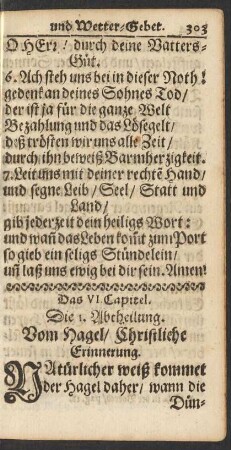 und Wetter-Gebet. 303
O HErr / durch deine Vatters-
Güt.
6. Ach steh uns bei in dieser Noth!
gedenk an deines Sohnes Tod /
der ist ja für die ganze Welt
Bezahlung und das Lösegelt /
deß trösten wir uns alle Zeit /
durch ihn beweiß Barmherzigkeit.
7. Leit uns mit deiner rechtē Hand /
und segne Leib / Seel / Statt und
Land /
gib jederzeit dein heiligs Wort:
und wañ das Leben kom̃t zum Port
so gieb ein seligs Stündelein /
uñ laß uns ewig bei dir sein. Amen!
Das VI. Capitel.
Die 1. Abtheilung.
Vom Hagel / Christliche
Erinnerung.
NAtürlicher weiß kommet
der Hagel daher / wann die
Dün-